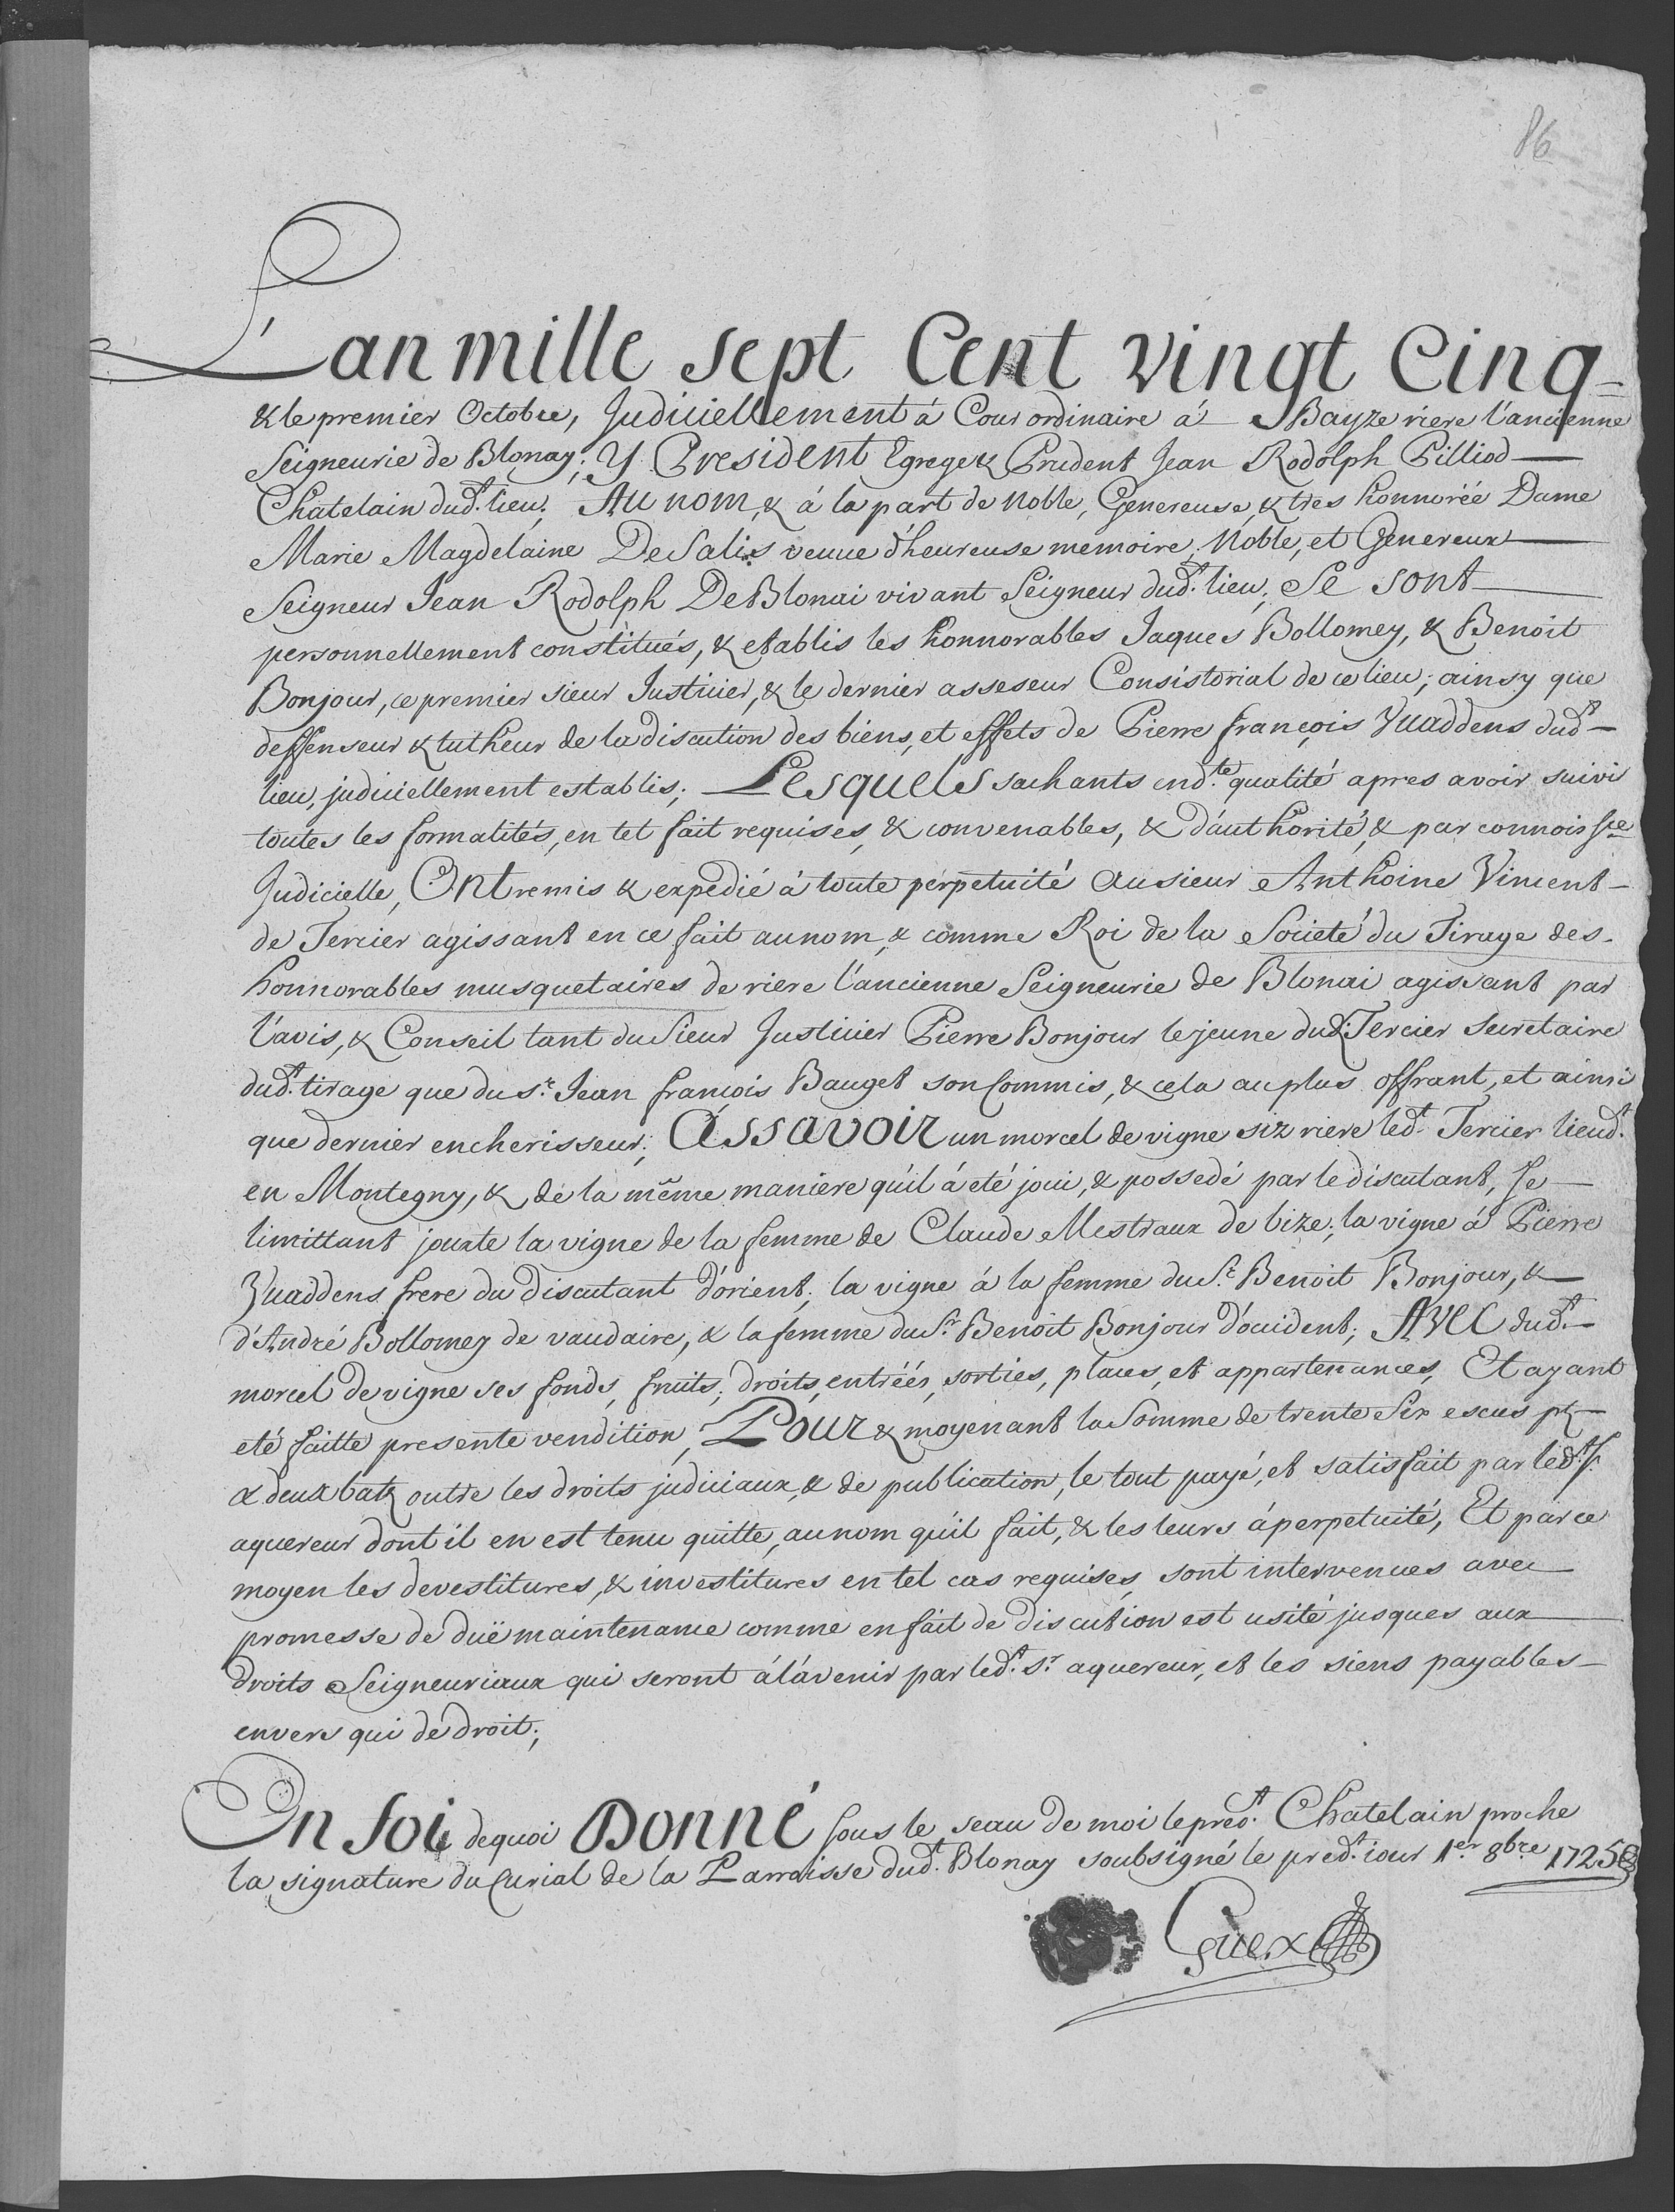 86
L'an mille sept Cent vingt Cinq=
& le premier Octobre, Judiciellement à Cour ordinaire à Bayze riere l'ancienne
Seigneurie de Blonay; Y President Egrege & Prudent Jean Rodolph Pilliod
Chatelain dud.t lieu; Au nom, & à la part de Noble, Genereuse, & tres honnorée Dame
Marie Magdelaine De Salis veuue d'heureuse memoire, Noble, et Genereux
Seigneur Jean Rodolph De Blonai vivant Seigneur dud.t lieu; Se sont
personnellement constitués, & etablis les honnorables Jaques Bollomey, & Benoit
Bonjour, ce premier sieur Justicier, & le dernier asseseur Consistorial de ce lieu; ainsy que
deffenseur & tutheur de la discution des biens, et effets de Pierre françois Yuaddens dud.t
lieu, judiciellement establis; Lesquels sachants end.te qualité apres avoir suivi
toutes les formalités, en tel fait requises, & convenables, & d'authorité, & par connoissce
Judicielle, Ont remis & expedié à toute perpetuité au sieur Anthoine Vincent
de Tercier agissant en ce fait au nom, & comme Roi de la Societé du Tirage des
honnorables musquetaires de riere l'ancienne Seigneurie de Blonai agissant par
l'avis, & Conseil tant du Sieur Justicier Pierre Bonjour le jeune dud.t Tercier Secretaire
dud.t tirage que du s.r Jean francois Bauget son Commis, & cela au plus offrant, et ainsi
que dernier encherisseur; Assavoir un morcel de vigne siz riere led.t Tercier lieud.t
en Montegny, & de la même maniere qu'il à eté joui, & possedé par le discutant, Se
limittant jouxte la vigne de la femme de Claude Mestraux de bize; la vigne à Pierre
Yuaddens frere du discutant d'orient; la vigne à la femme du S.r Benoit Bonjour, &
d'André Bollomey de vaudaire, & la femme du S.r Benoit Bonjour d'occident; Avec dud.t
morcel de vigne ses fonds, fruits, droits, entréés, sorties, places, et appartenances, Et ayant
eté faitte presente vendition, Pour & moyenant la Somme de trente Six escus pt
& deux batz outre les droits judiciaux, & de publication, le tout payé, et satisfait par led.t S.r
aquereur dont il en est tenu quitte, au nom qu'il fait, & les leurs à perpetuité, Et par ce
moyen les devestitures, & investitures en tel cas requises, sont intervenues avec
promesse de duë maintenance comme en fait de discution est usité jusques aux
droits Seigneuriaux qui seront à l'avenir par led.t s.r aquereur, et les siens payables
envers qui de droit;
En foi dequoi Donné sous le seau de moi le pred.t Chatelain proche
la signature du Curial de la Parroisse dud.t Blonay soubsigné le pred.t iour 1.er 8bre 1725
Guex